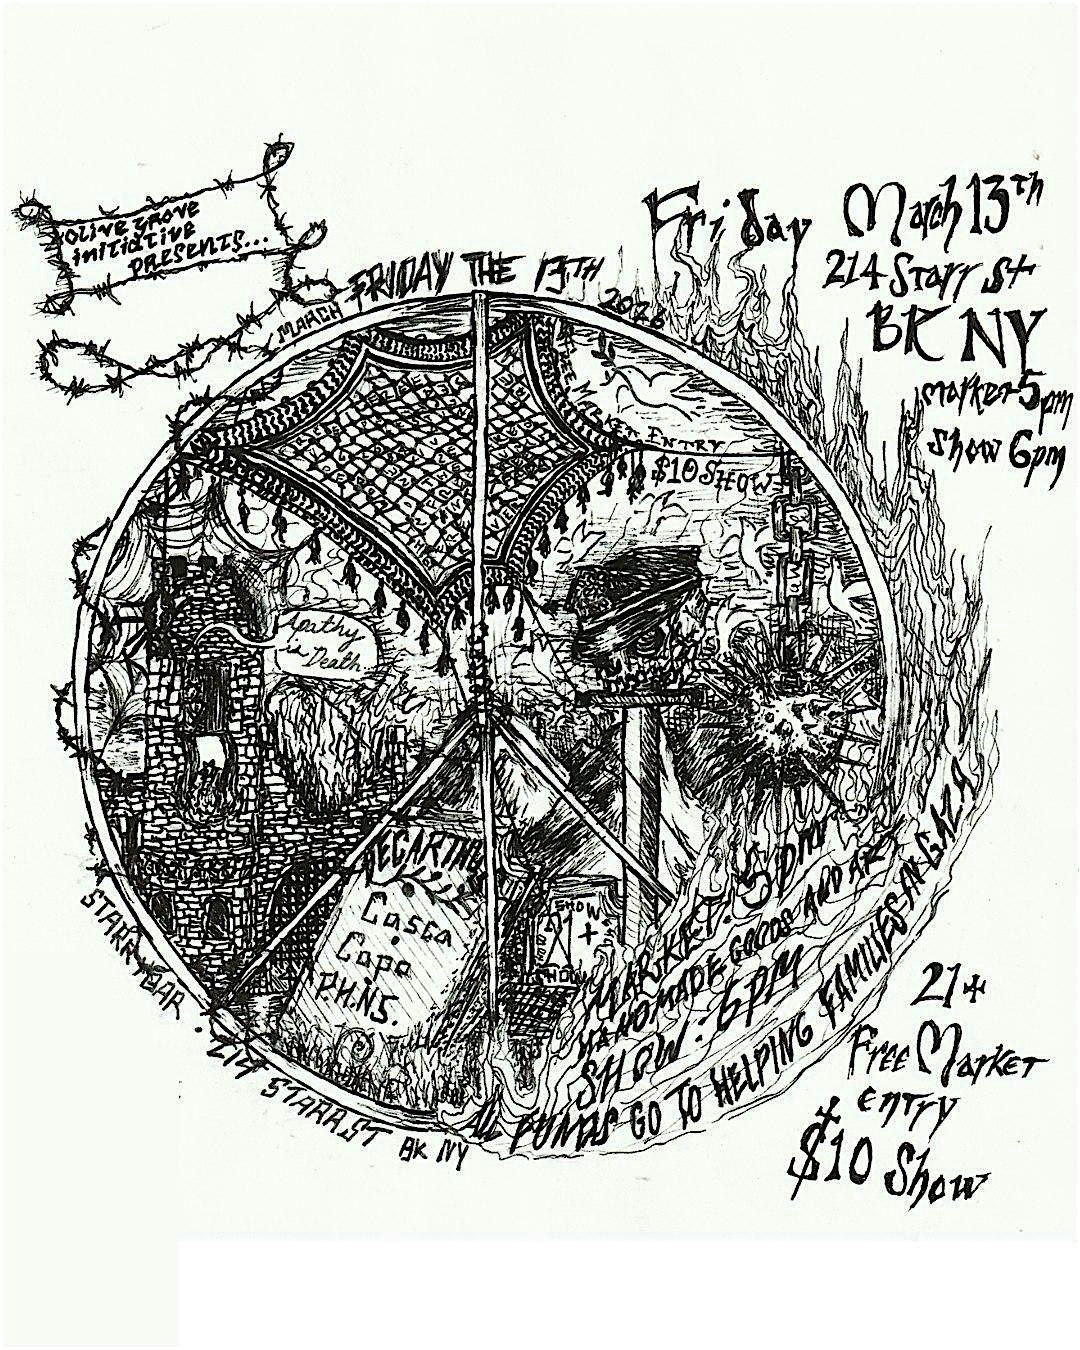 Olive Grove
initiative
PRESENTS...
Friday March 13th
214 Starr St
BK NY
market 5pm
Show 6pm
MARCH FRIDAY THE 13TH 2026
FREE MARKET ENTRY
$10 SHOW
Apathy
is Death.
Casca
Capo
P.H.N.S.
SHOW
21+
MARKET: 5pm
HANDMADE GOODS AND ART
SHOW: 6PM
ALL FUNDS GO TO HELPING FAMILIES IN GAZA
STARR BAR. 214 STARR ST BK NY
21+
Free Market
entry
$10 Show